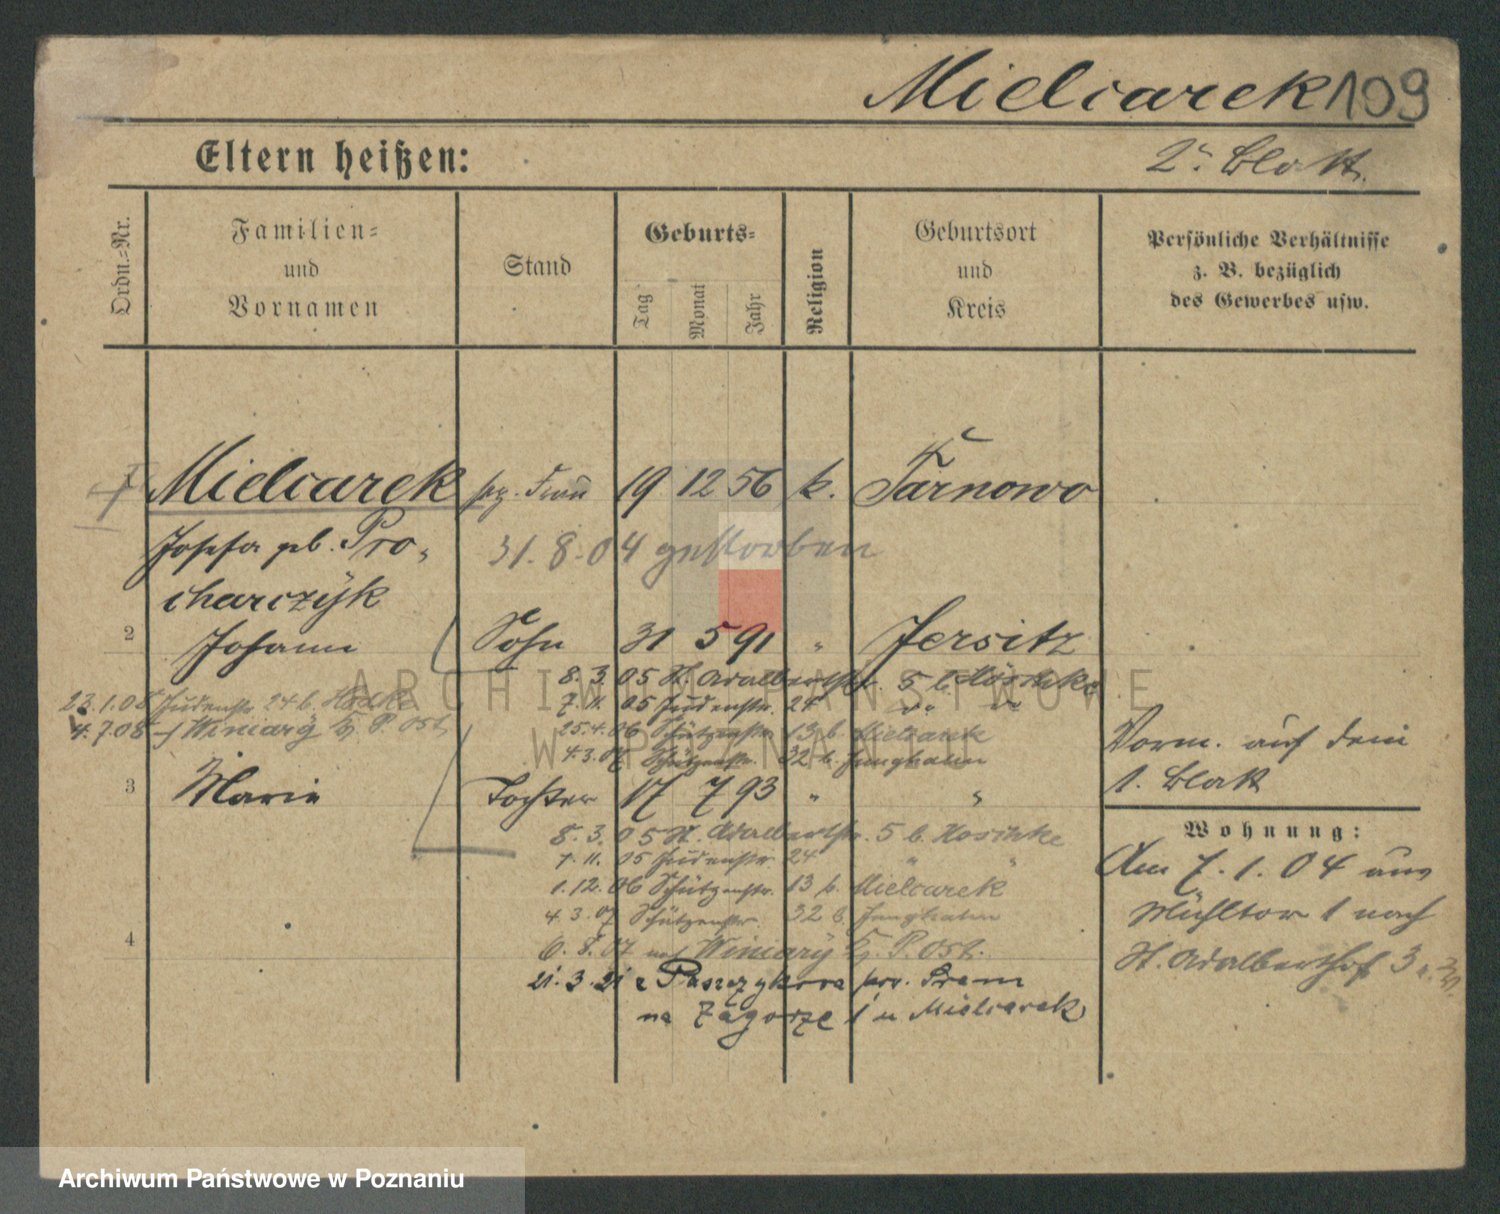 Mielcarek 109
Eltern heißen:
2. Blatt.
Ordn.-Nr.
Familien-
und
Vornamen
Stand
Geburts-
Tag
Monat
Jahr
Religion
Geburtsort
und
Kreis
Persönliche Verhältnisse
z. B. bezüglich
des Gewerbes usw.
Mielcarek Frau 19 12 56 k. Tarnowo
Josefa geb. Pro-
31. 8. 04 gestorben
charczÿk
2 Johann Sohn 31 5 91 " Jersitz
8. 3. 05 St. Adalbertstr. 5 b. Hoschke
7. 11. 05 Judenstr. 24
23. 1. 08 Judenstr. 24 b.
25. 4. 06 Schützenstr. 13 b. Mielcarek
4. 7. 08 Winiary P. Ost
4. 3. 07 Schützenstr. 32 b. Junghahn
3 Marie Tochter 17 7 93 " "
8. 3. 05 St. Adalbertstr. 5 b. Hoschke
7. 11. 05 Judenstr. 24 " "
1. 12. 06 Schützenstr. 13 b. Mielcarek
4. 3. 07 Schützenstr. 32 b. Junghahn
4
6. 8. 07 nach Winiary P. Ost.
21. 3. 21 z
na Zagórze 1 u Mielcarek
Vorm. auf dem
1. Blatt
Wohnung:
Am 7. 1. 04 aus
Mühltor 1 nach
St. Adalberthof 3
ARCHIWUM PAŃSTWOWE
W POZNANIU
Archiwum Państwowe w Poznaniu